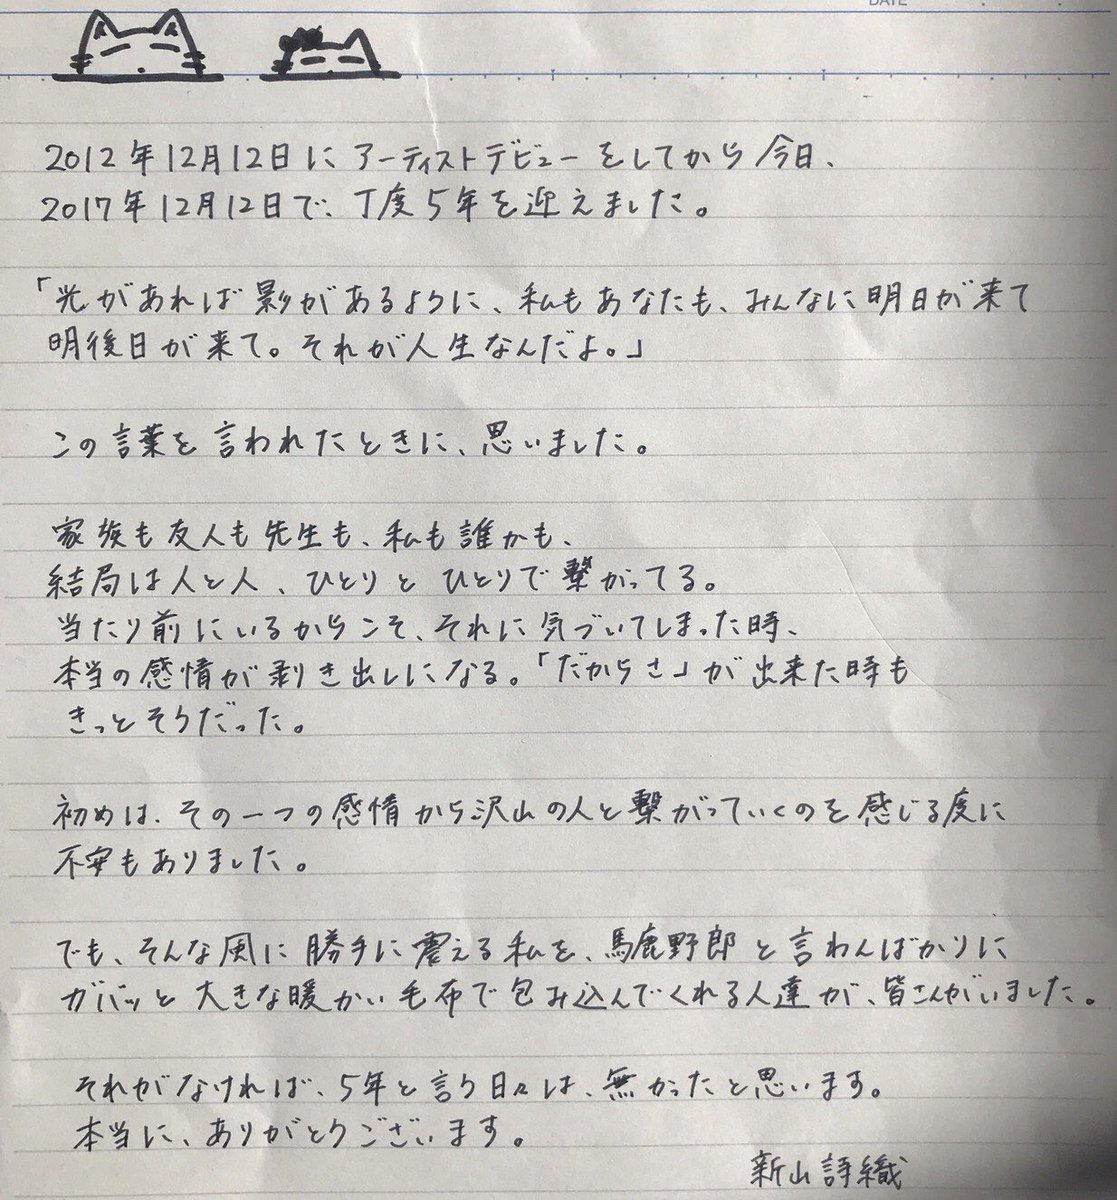 DATE
2012年12月12日にアーティストデビューをしてから今日、
2017年12月12日で、丁度5年を迎えました。
「光があれば影があるように、私もあなたも、みんなに明日が来て
明後日が来て。それが人生なんだよ。」
この言葉を言われたときに、思いました。
家族も友人も先生も、私も誰かも、
結局は人と人、ひとりとひとりで繋がってる。
当たり前にいるからこそ、それに気づいてしまった時、
本当の感情が剥き出しになる。「だからさ」が出来た時も
きっとそうだった。
初めは、その一つの感情から沢山の人と繋がっていくのを感じる度に
不安もありました。
でも、そんな風に勝手に震える私を、馬鹿野郎と言わんばかりに
ガバッと大きな暖かい毛布で包み込んでくれる人達が、皆さんがいました。
それがなければ、5年と言う日々は、無かったと思います。
本当に、ありがとうございます。
新山詩織